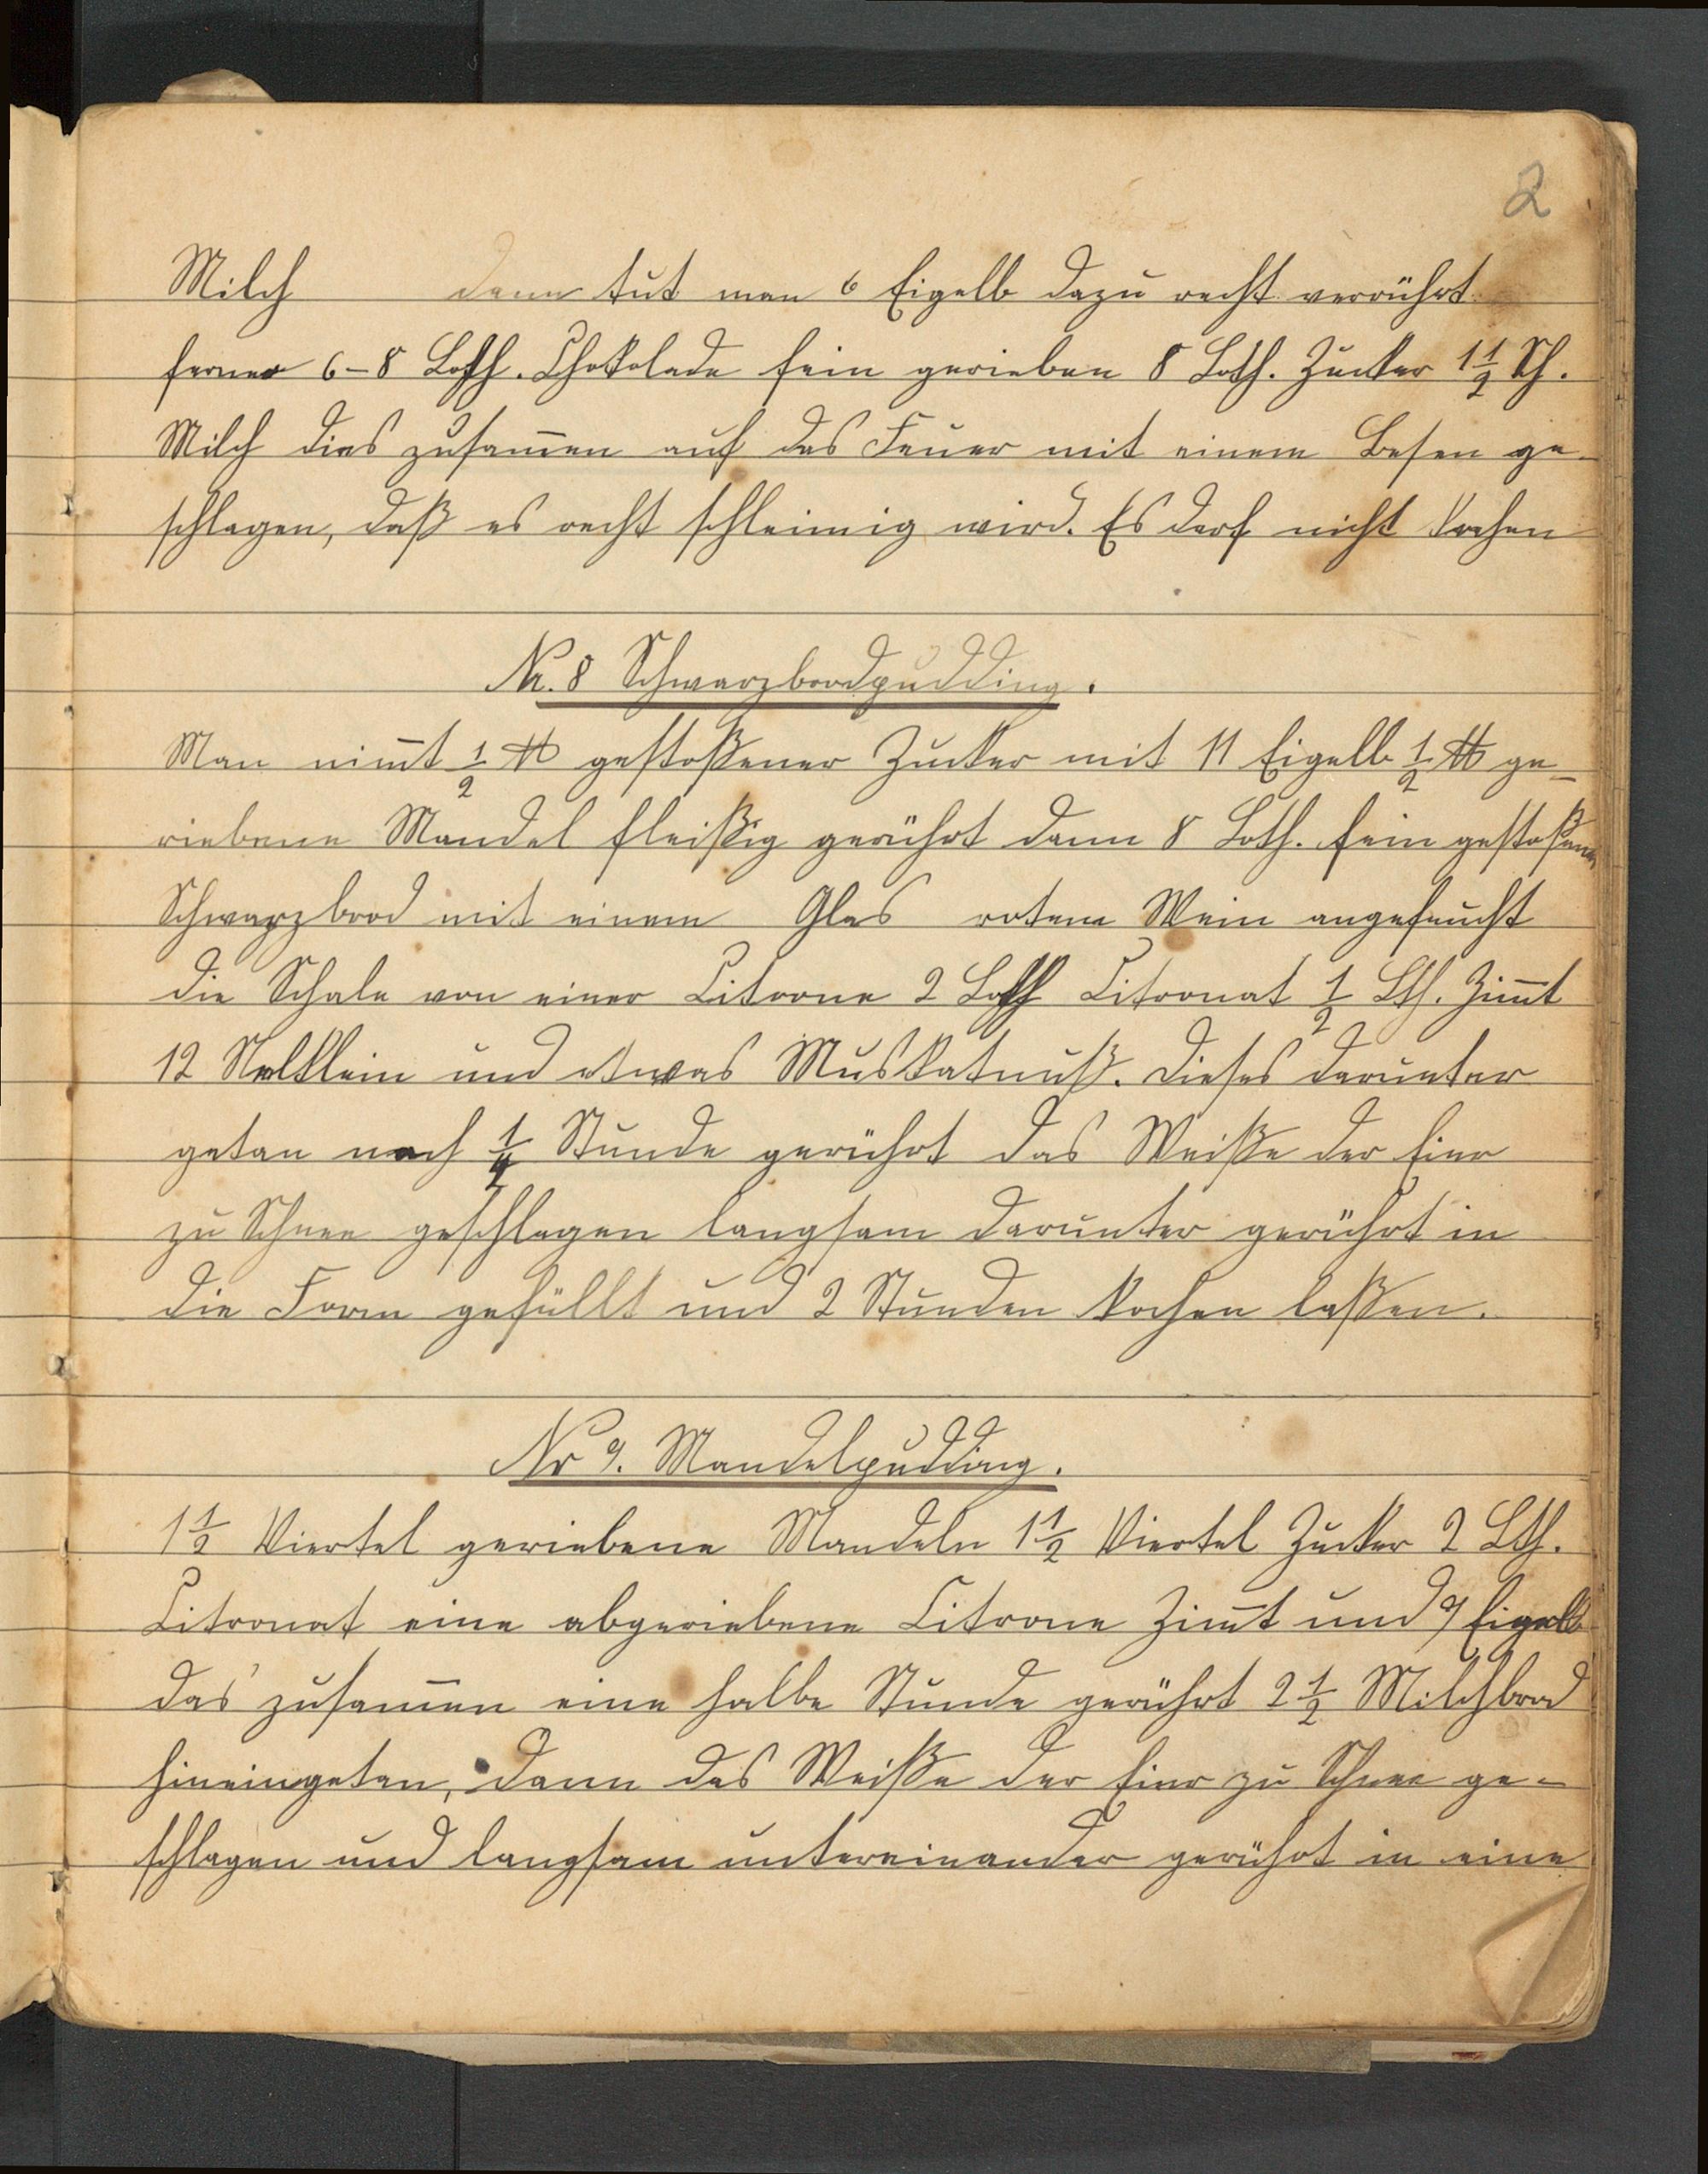 2
Milch dann tut man 6 Eigelb dazu recht verrührt
ferner 6-8 Loth. Chokolade fein gerieben 8 Loth. Zucker 1 1/2 Sch.
Milch dies zusam̄en auf das Feuer mit einem Besen ge-
schlagen, daß es recht schleimig wird. Es darf nicht kochen
Nr. 8 Schwarzbrodpudding.
Man nim̄t 1/2 ℔ gestoßener Zucker mit 11 Eigelb 1/2 ℔ ge-
riebene Mandel fleißig gerührt dann 8 Loth. fein gestoßenes
Schwarzbrod mit einem Glas rotem Wein angefeucht
die Schale von einer Citrone 2 Loth Citronat 1/2 Lth. Zim̄t
12 Nelklein und etwas Muskatnuß. Dieses darunter
getan nach 1/4 Stunde gerührt das Weiße der Eier
zu Schnee geschlagen langsam darunter gerührt in
die Form gefüllt und 2 Stunden kochen laßen.
Nr 9. Mandelpudding.
1 1/2 Viertel geriebene Mandeln 1 1/2 Viertel Zucker 2 Lth.
Citronat eine abgeriebene Citrone Zim̄t und 9 Eigelb
das zusam̄en eine halbe Stunde gerührt 2 1/2 Milchbrod
hineingetan, dann das Weiße der Eier zu Schnee ge-
schlagen und langsam untereinander gerührt in eine